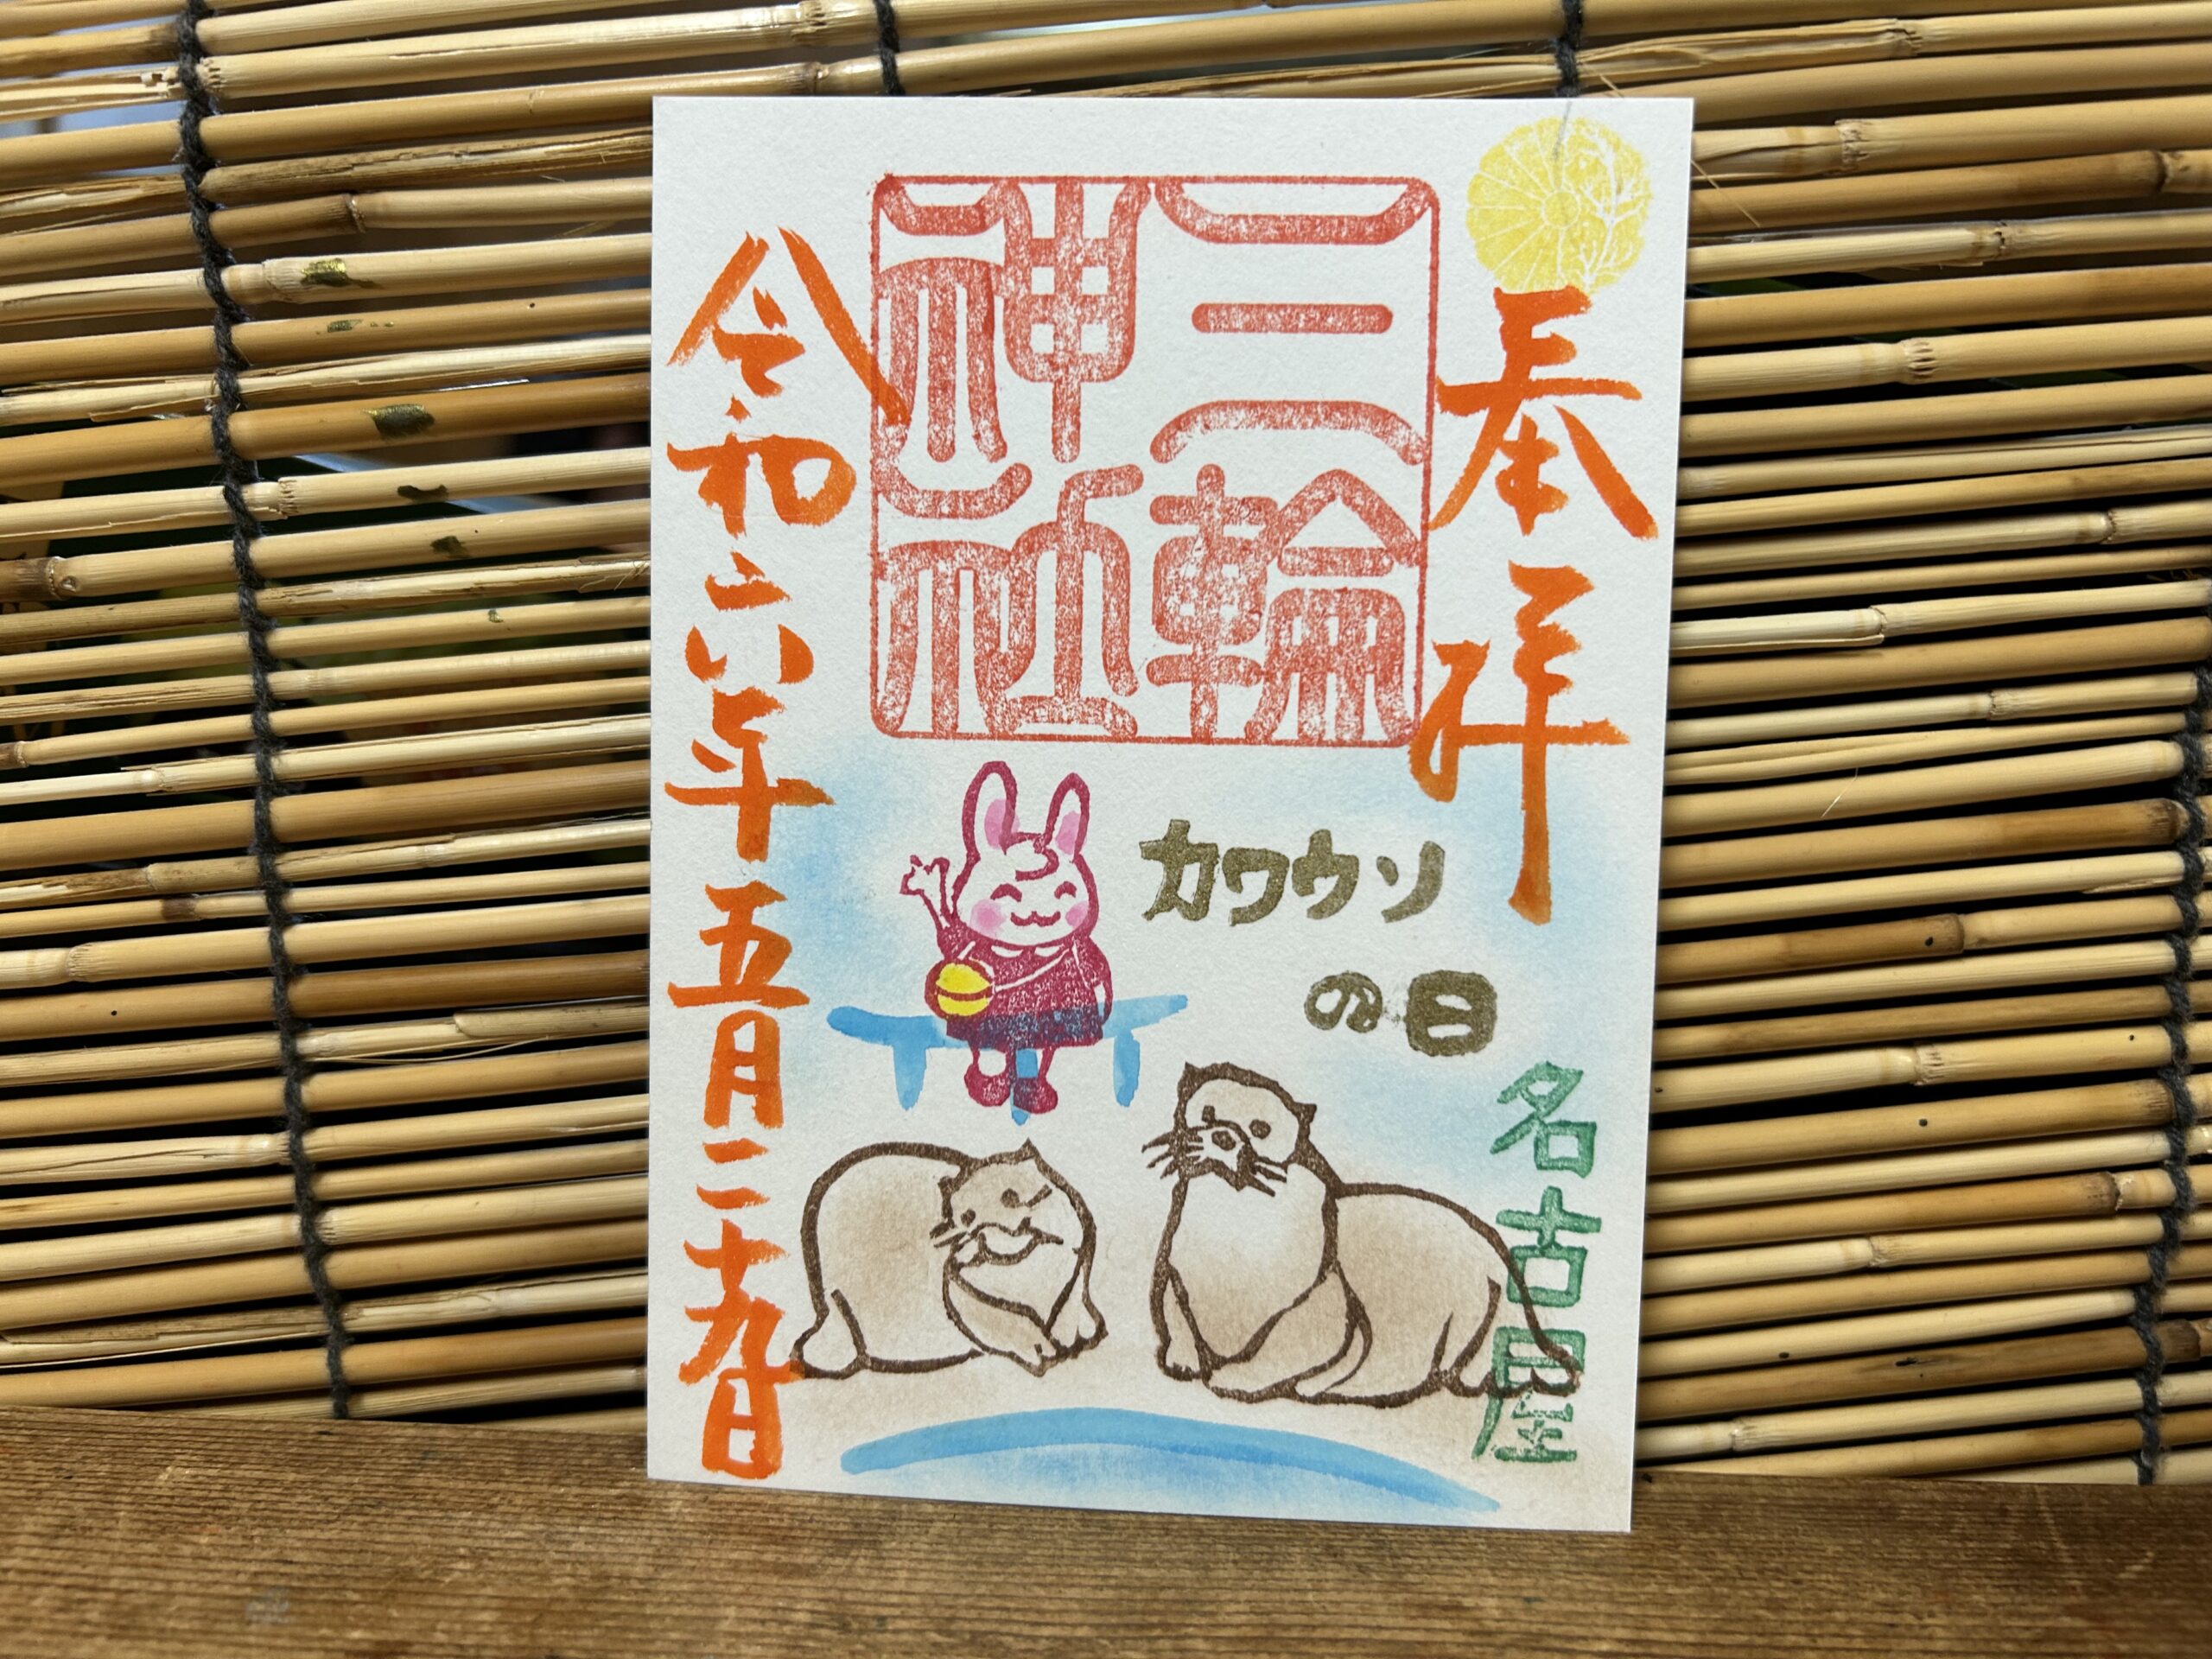 奉拝
三輪
神社
カワウソ
の日
名古屋
令和六年五月二十九日